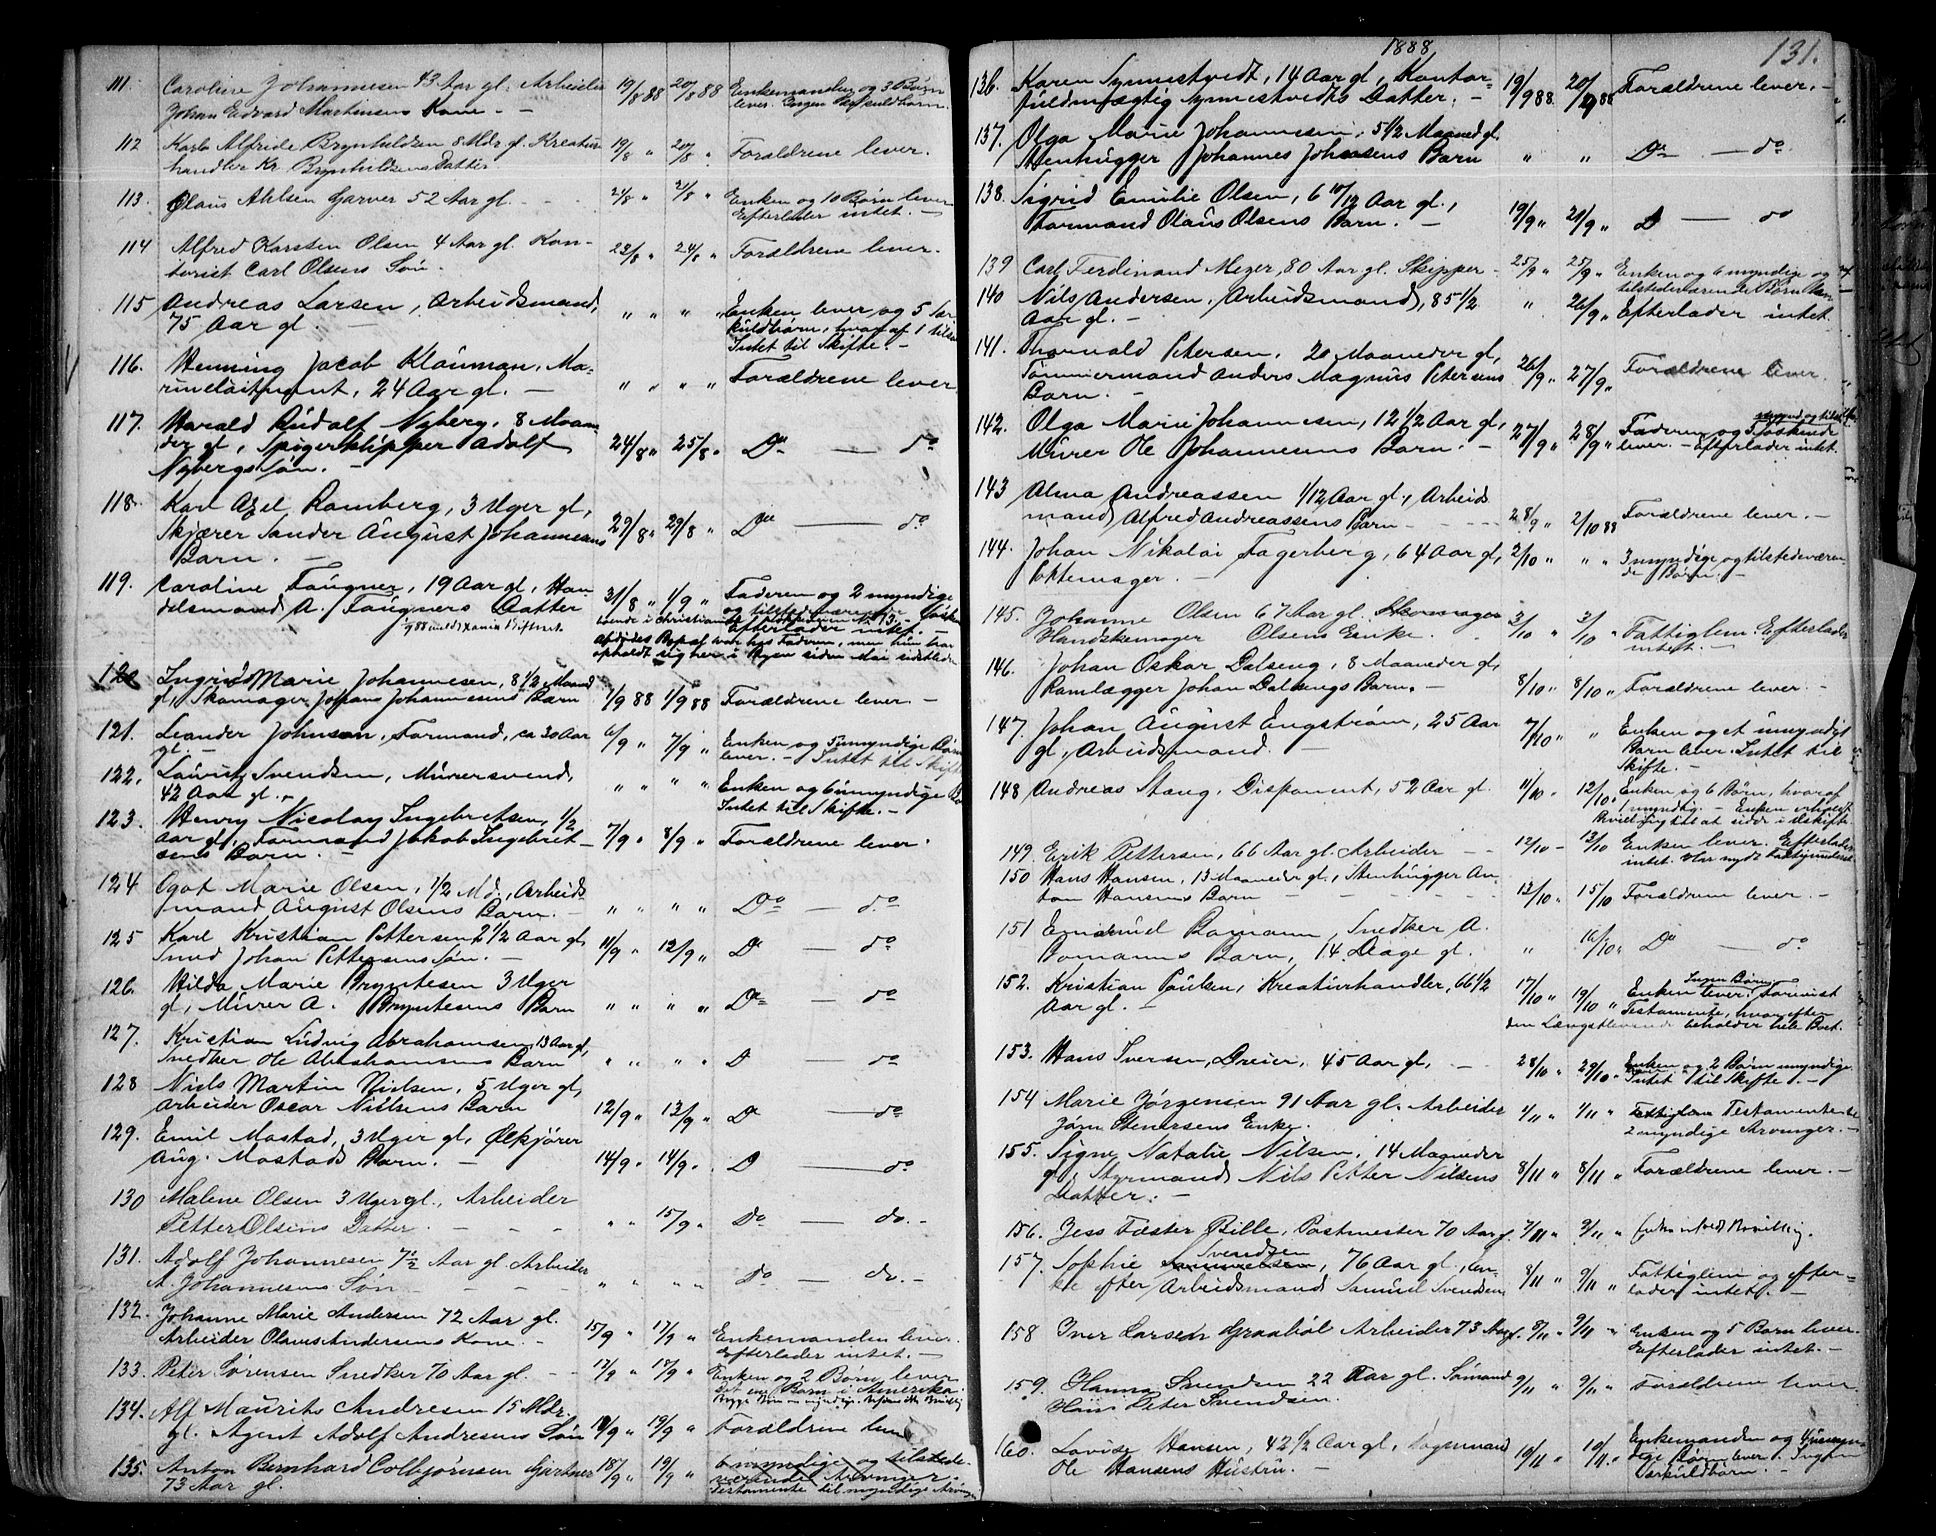 111. Caroline Johannesen 43 Aar gl. Arbeider 19/8 88 20/8 88 Enkemanden og 3 Børn
Johan Edvard Martinsens Kone — lever. Ingen Særkuldbørn.
112 Karla Alfride Brynhildsen 8 Mdr. gl. Kreatur 19/8 " 20/8 " Forældrene lever.
handler Kr. Brynhildsens Datter.
113. Olaus Ahlsen Garver 52 Aar gl. 21/8 " 21/8 " Enken og 10 Børn lever
Efterlader intet. —
114 Alfred Karsten Olsen 4 Aar gl. Kon- 23/8 " 24/8 " Forældrene lever.
torist Carl Olsens Søn.
115 Andreas Larsen, Arbeidsmand, " " " " Enken lever og 5 Sær
75 Aar gl. — kuldbørn, hvoraf 1
Intet til Skifte. —
116. Henning Jacob Klouman, Ma- " " " " Forældrene lever
rinelöitnant, 24 Aar gl. —
117. Harald Rudolf Nyberg, 8 Maan-
der gl, Spigerklipper Adolf 24/8 " 25/8 " Do — do
Nybergs Søn. —
118. Karl Axel Ramberg, 3 Uger gl,
Skjærer Sander August Johannesens 29/8 " 29/8 " Do — do
Barn. —
119. Caroline Fougner, 19 Aar gl, Han 31/8 " 1/9 " Faderen og 2 myndige
delsmand A. Fougners Datter og tilstedeværende
Efterlader intet. —
opholdt sig her i Byen siden Mai
120 Ingrid Marie Johannesen, 8 1/2 Maaned
gl, Skomager Johans Johannesens Barn 1/9 88 1/9 88 Forældrene lever —
121. Leander Johnson, Formand, ca 30 Aar 6/9 " 7/9 " Enken og 5 umyndige Børn
gl. — lever. — Intet til Skifte
122. Lauritz Svendsen, Murersvend, " " " " Enken og 6 umyndige
42 Aar gl. — Intet til Skifte. —
123. Henry Nicolay Ingebretsen, 1/2
Aar gl, Formand Jakob Ingebret- 7/9 " 8/9 " Forældrene lever.
sens Barn. —
124 Ogot Marie Olsen, 1/2 Md., Arbeids-
mand August Olsens Barn. — " " " " Do — do
125 Karl Kristian Pettersen, 2 1/2 Aar gl, 11/9 " 12/9 " Do — do
Smed Johan Pettersens Søn. —
126. Hilda Marie Bryntesen 3 Uger
gl, Murer A. Bryntesens Barn " " " " Do — do
127. Kristian Ludvig Abrahamsen, 13 Aar gl,
Snedker Ole Abrahamsens Barn " " " " D — do
128 Niels Martin Nielsen, 5 Uger gl,
Arbeider Oscar Nielsens Barn 12/9 " 13/9 " D — do
129. Emil Mostad, 3 Uger gl, Ølkjører
Aug. Mostads Barn. — 14/9 " 14/9 " D — do
130 Malene Olsen 3 Uger gl., Arbeider
Petter Olsens Datter. — " " 15/9 " Do — do. —
131. Adolf Johannesen 7 1/2 Aar gl Arbeider
A. Johannesens Søn — " " " " Do — do. —
132. Johanne Marie Andersen 72 Aar gl. 15/9 " 17/9 " Enkemanden lever.
Arbeider Olaves Andersens Kone. — Efterlader intet. —
133. Peter Sørensen Snedker 70 Aar gl. 13/9 " 18/9 " Enken og 2 Børn lever
det ene Barn i Amerika.
134. Alf Maurits Andresen 15 Mdr. 19/9 " 19/9 " Forældrene lever
gl. Agent Adolf Andresens Søn
135. Anton Bernhard Colbjørnsen Gjartner 18/9 " 19/9 " 6 myndige og tilstede-
73 Aar gl. værende Arvinger.
Testamente til myndige Arvin
1888 131.
136. Karen Synnestvedt, 14 Aar gl, Kontor- 19/9 88. 20/9 88 Forældrene lever. —
fuldmægtig Synnestvedts Datter. —
137. Olga Marie Johannesen, 5 1/2 Maaned gl.
Stenhugger Johannes Johnsens Barn " " Do — do
138. Sigrid Emilie Olsen, 6 10/12 Aar gl.,
Formand Olaus Olsens Barn. — 19/9 " 21/9 " D — do
139 Carl Ferdinand Meyer, 80 Aar gl. Skipper 25/9 " 27/9 " Enken og 6 myndige og
tilstedeværende Børn
140 Nils Andersen, Arbeidsmand, 85 1/2 " 26/9 " Efterlader intet.
Aar gl. —
141. Thorvald Petersen, 20 Maaneder gl, 26/9 " 27/9 " Forældrene lever.
Tømmermand Anders Magnus Petersens
Barn. —
142. Olga Marie Johannesen, 12 1/2 Aar gl, 27/9 " 28/9 " Faderen og Søskende
Murer Ole Johannesens Barn. — lever. — Efterlader intet.
143 Alma Andreassen 1/12 Aar gl., Arbeids
mand Alfred Andreassens Barn — 28/9 " 2/10 88 Forældrene lever. —
144. Johan Nikolai Fagerberg, 64 Aar gl, 2/10 " " " 3 myndige og tilstedeværen
Pottemager. — de Børn. —
145. Johanne Olsen 67 Aar gl. Skomager 3/10 " 3/10 " Fattiglem. Efterlader
Handskemager Olsens Enke. intet. —
146. Johan Oskar Dalseng, 8 Maaneder gl,
Ramlægger Johan Dalsengs Barn. — 8/10 " 8/10 " Forældrene lever. —
147. Johan August Engstrøm, 25 Aar 7/10 " " Enken og et umyndigt
gl, Arbeidsmand. — Barn lever. Intet til
Skifte. —
148 Andreas Stang, Disponent, 52 Aar gl. 11/10 " 12/10 " Enken og 6 Børn, hvoraf
1 myndig. — Enken erholdt
Bevilling til at sidde i Uskifte.
149. Erik Pettersen, 66 Aar gl. Arbeider — 12/10 — 13/10 Enken lever. Efterlader
intet. Har nydt Fattigunderst
150 Hans Hansen, 13 Maaneder gl., Stenhugger An-
ton Hansens Barn — 13/10 " 15/10 Forældrene lever. —
151 Emanuel Bomann, Snedker A.
Bomanns Barn, 14 Dage gl. " 16/10 " Do — do
152. Kristian Poulsen, Kreaturhandler, 66 1/2 17/10 " 19/10 " Enken lever. Ingen Børn.
Aar gl. — Testamente, hvorefter
den Længstlevende beholder hele Boet.
153. Hans Iversen, Dreier, 45 Aar gl, — 28/10 " 29/10 " Enken og 2 Børn umyndige
Intet til Skifte. —
154 Marie Jørgensen 91 Aar gl. Arbeider 1/11 " 1/11 " Fattiglem Testamente
Jørn Stenersens Enke. 2 myndige Arvinger. —
155. Signe Natalie Nilsen, 14 Maaneder
gl, Styrmand Nils Petter Nilsens 8/11 " 8/11 " Forældrene lever. —
Datter. —
156. Jess Fæster Bille, Postmester 70 Aar gl. 7/11 " 9/11 "
157. Sophie Samuelsen Svendsen, 76 Aar gl., En- 8/11 " 9/11 " Fattiglem og efter-
ke efter Arbeidsmand Samuel Svendsen lader intet. —
158 Iver Larsen Graabøl Arbeider 73 Aar gl. 8/11 " 9/11 " Enken og 5 Børn lever.
Efterlader intet. —
159. Hanna Svendsen 22 Aar gl. Sømand 9/11 " 9/11 " Forældrene lever
Hans Peter Svendsen.
160. Lovise Hansen, 42 1/2 Aar gl, Dagsmand 10/11 " 10/11 " Enkemanden og 4 umyn-
Ole Hansens Hustru. — dige Børn lever. Ingen
Særkuldbørn. —